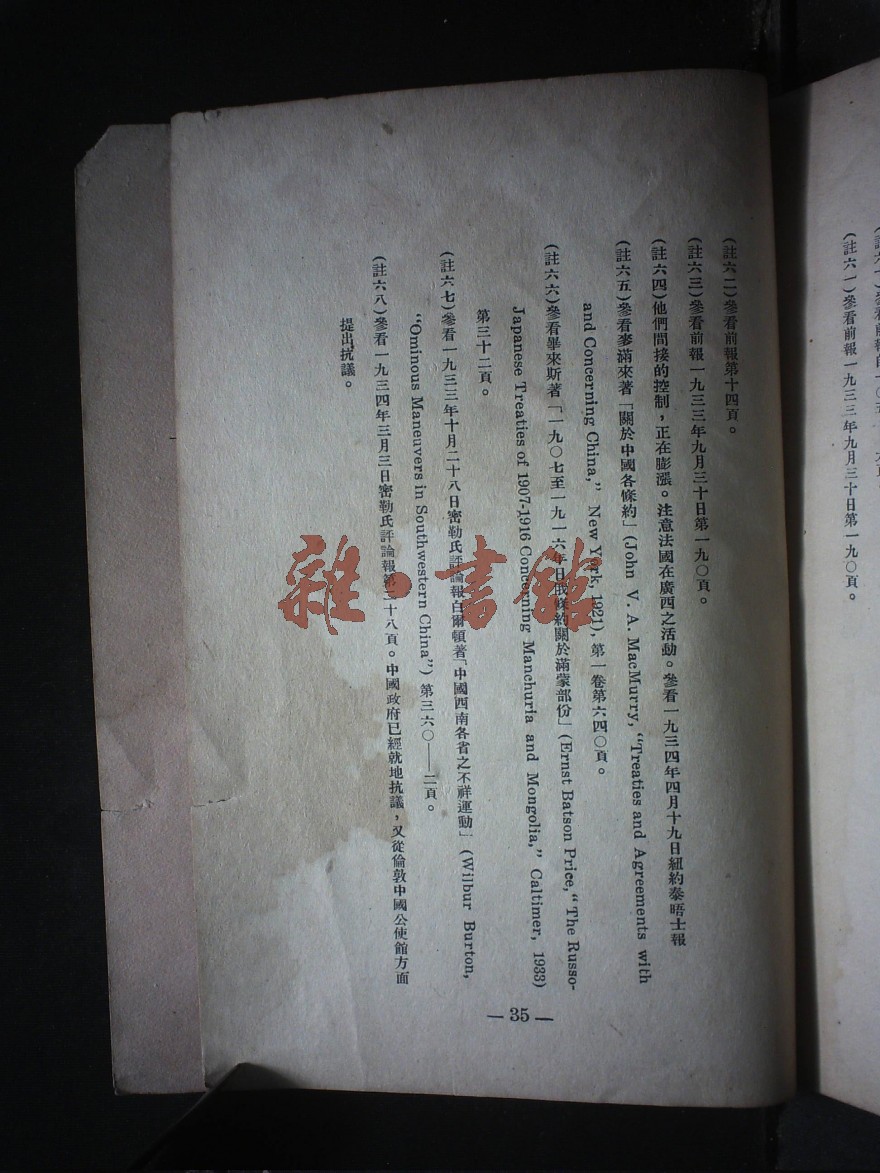 (註六一)參看前報一九三三年九月三十日第一九〇頁。
(註六二)參看前報第十四頁。
(註六三)參看前報一九三三年九月三十日第一九〇頁。
(註六四)他們間接的控制，正在膨漲。注意法國在廣西之活動。參看一九三四年四月十九日紐約泰晤士報
(註六五)參看麥滿來著「關於中國各條約」(John V. A. MacMurry, “Treaties and Agreements with
and Concerning China,” New York, 1921), 第一卷第六四〇頁。
(註六六)參看畢來斯著「一九〇七至一九一六年日俄條約關於滿蒙部份」(Ernst Batson Price, “The Russo-
Japanese Treaties of 1907-1916 Concerning Manchuria and Mongolia,” Caltimer, 1933)
第三十二頁。
(註六七)參看一九三三年十月二十八日密勒氏評論報白爾頓著「中國西南各省之不祥運動」(Wilbur Burton,
“Ominous Maneuvers in Southwestern China”) 第三六〇——二頁。
(註六八)參看一九三四年三月三日密勒氏評論報第三十八頁。中國政府已經就地抗議，又從倫敦中國公使館方面
提出抗議。
— 35 —
雜·書館